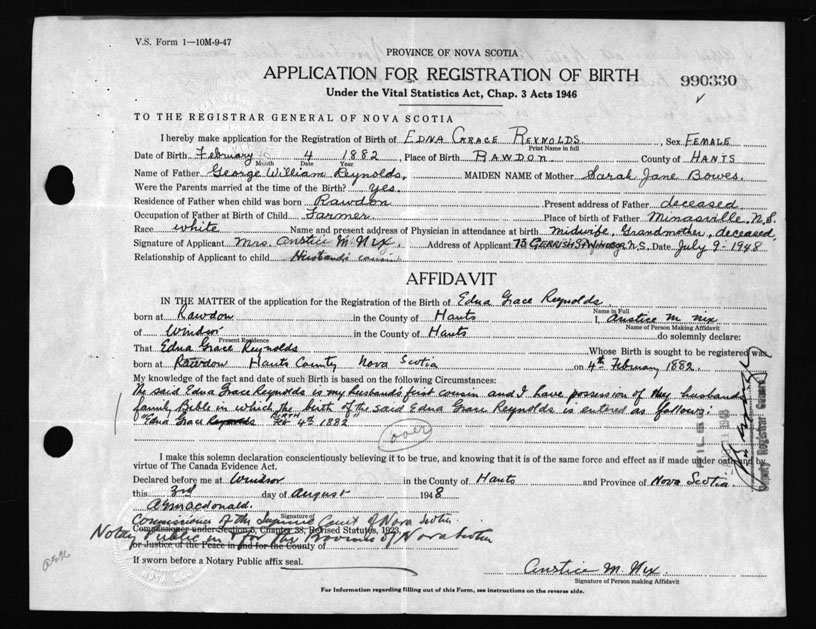 V.S. Form 1—10M-9-47
PROVINCE OF NOVA SCOTIA
APPLICATION FOR REGISTRATION OF BIRTH
990330
Under the Vital Statistics Act, Chap. 3 Acts 1946
TO THE REGISTRAR GENERAL OF NOVA SCOTIA
I hereby make application for the Registration of Birth of EDNA GRACE REYNOLDS, Sex FEMALE
Print Name in full
Date of Birth February 4 1882, Place of Birth RAWDON County of HANTS
Month Date Year
Name of Father George William Reynolds. MAIDEN NAME of Mother Sarah Jane Bowes.
Were the Parents married at the time of the Birth? Yes.
Residence of Father when child was born Rawdon Present address of Father deceased
Occupation of Father at Birth of Child Farmer Place of birth of Father Minasville, N.S.
Race white Name and present address of Physician in attendance at birth midwife, Grandmother, deceased,
Signature of Applicant Mrs. Anstice M Nix. Address of Applicant 73 GERRISH ST WINDSOR N.S. Date July 9 - 1948
Relationship of Applicant to child Husband's cousin
AFFIDAVIT
IN THE MATTER of the application for the Registration of the Birth of Edna Grace Reynolds
Name in Full
born at Rawdon in the County of Hants I, Anstice M Nix
Name of Person Making Affidavit
of Windsor in the County of Hants do solemnly declare:
Present Residence
That Edna Grace Reynolds Whose Birth is sought to be registered was
born at Rawdon Hants County Nova Scotia on 4th February 1882.
My knowledge of the fact and date of such Birth is based on the following Circumstances:
The said Edna Grace Reynolds is my husband's first cousin and I have possession of my husband's
family Bible in which the birth of the said Edna Grace Reynolds is entered as follows:
"Edna Grace Reynolds BIRTH Feb 4th 1882"
over
I make this solemn declaration conscientiously believing it to be true, and knowing that it is of the same force and effect as if made under oath and by
virtue of The Canada Evidence Act.
Declared before me at Windsor in the County of Hants and Province of Nova Scotia.
this 3rd day of August 1948
A G Macdonald.
Signature of
Commissioner of the Supreme Court of Nova Scotia
Commissioner under Section 5, Chapter 38, Revised Statutes, 1923,
Notary Public in & for the Province of Nova Scotia
or Justice of the Peace in and for the County of
If sworn before a Notary Public affix seal.
Anstice M. Nix
Signature of Person making Affidavit
For Information regarding filling out of this Form, see instructions on the reverse side.
FILED
Deputy Registrar General